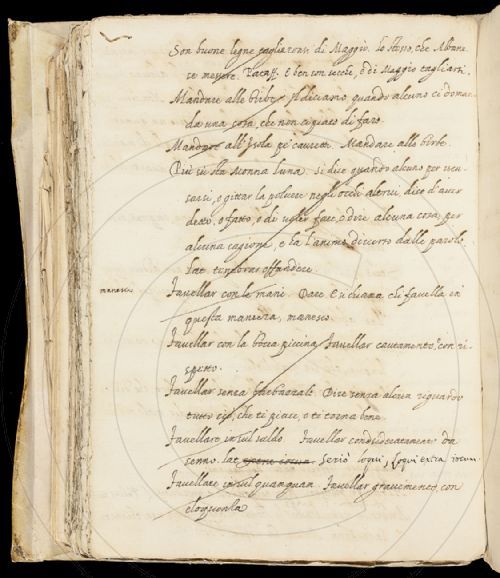 Son buone legne tagliaronsi di Maggio. lo stesso, che Albane
se messere. Pataff. E ben son secche, e di Maggio tagliarsi.
Mandare alle birbe. Il diciamo, quando alcuno ci doman
da una cosa, che non ci piace di fare.
Mandare all' Isola pe' cavoli. Mandare alle birbe.
Più sù sta monna luna. si dice quando alcuno per iscu-
sarsi, e gittar la polvere negli occhi altrui, dice d'aver
detto, o fatto, o di voler fare, o dire alcuna cosa per
alcuna cagione, e ha l'animo diverso dalle parole.
lat.
manesco.
Favellar con le mani. Dare E si chiama chi favella in
questa maniera, manesco.
Favellar con la bocca piccina. Favellar cautamente, con ri-
spetto.
Favellar senza barbazzale. Dire senza alcun riguardo
tutto ciò, che ti piace, e ti torna bene.
Favellare in sul saldo. Favellar consideratamente da
senno. lat. seriò loqui, loqui extra iocum.
Favellare in sul quamquam. Favellar gravemente, con
eloquenza